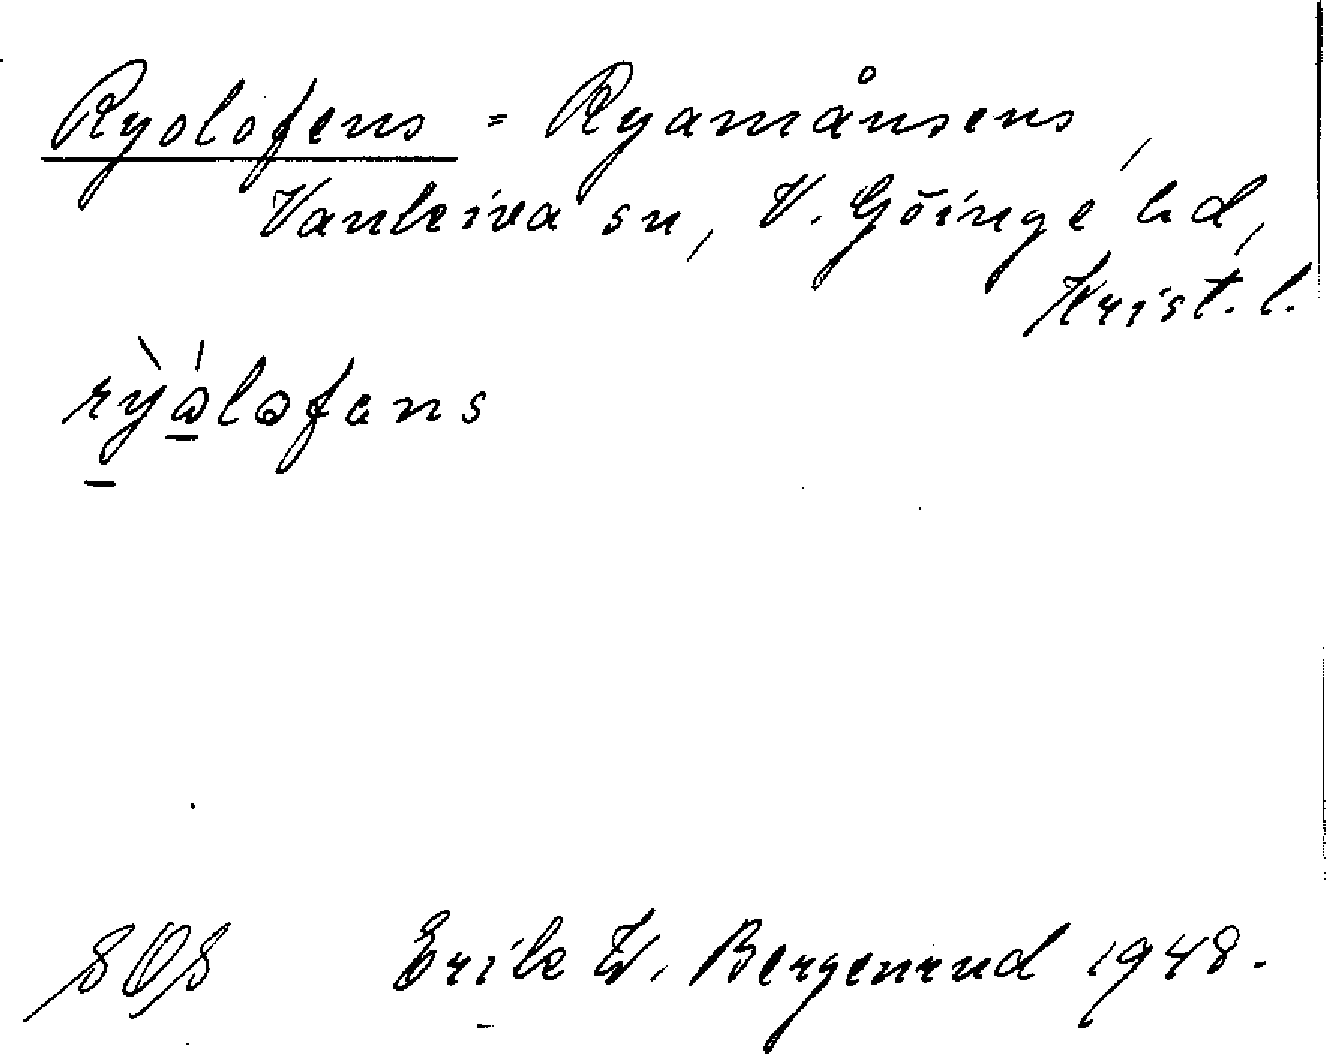 Ryolofens = Ryamånsens,
Vankiva sn, V. Göinge hd,
Krist. l.
rỳálofens
SOS Erik W. Bergenrud 1948.